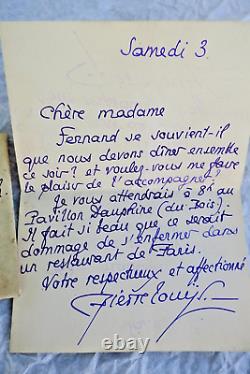 Samedi 3.
Chère madame
Fernand se souvient-il
que nous devons dîner ensemble
ce soir? et voulez-vous me faire
le plaisir de l'accompagner?
Je vous attendrai à 8h au
Pavillon Dauphine (du Bois).
Il fait si beau que ce serait
dommage de s'enfermer dans
un restaurant de Paris.
Votre respectueux et affectionné
Pierre Louÿs